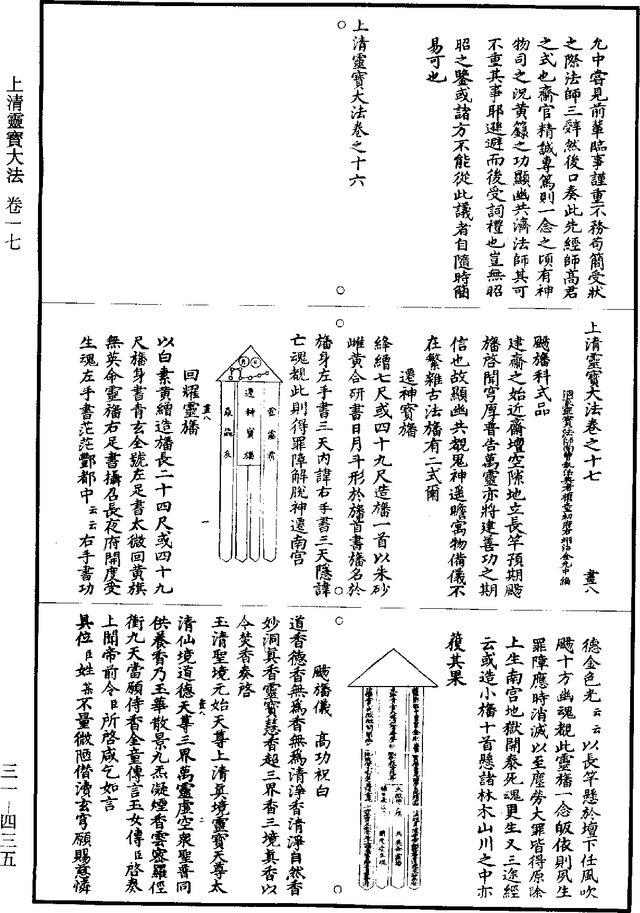 上清靈寶大法 卷一七
三一—四三五
允中嘗見前輩臨事謹重不務苟簡受狀
之際法師三辭然後口奏此先經師高君
之式也齋官精誠專篤則一念之頃有神
物司之況黃籙之功顯幽共濟法師其可
不重其事耶遜避而後受詞禮也豈無昭
昭之鑒或諸方不能從此議者自隨時簡
易可也
上清靈寶大法卷之十六
上清靈寶大法卷之十七 畫八
颺旛科式品
建齋之始近齋壇空隙地立長竿預期颺
旛啓聞穹厚普告萬靈亦將建善功之期
信也故顯幽共覩鬼神遥瞻寓物備儀不
在繁雜古法旛有二式爾
遷神寶旛
絳繒七尺或四十九尺造旛一首以朱砂
雌黃合研書日月斗形於旛首書旛名於
旛身左手書三天內諱右手書三天隱諱
亡魂覩此則得罪障解脫神遷南宫
遷神寶旛
回耀靈旛
以白素黃繒造旛長二十四尺或四十九
尺旛身書青玄全號左足書太微回黃旗
無英命靈旛右足書攝召長夜府開度受
生魂左手書茫茫酆都中云云右手書功
德金色光云云以長竿懸於壇下任風吹
颺十方幽魂覩此靈旛一念皈依則夙生
罪障應時消滅以至塵勞大罪皆得原除
上生南宫地獄開泰死魂更生又三途經
云或造小旛十首懸諸林木山川之中亦
獲其果
颺旛儀 高功祝白
道香德香無為香無為清淨香清淨自然香
妙洞真香靈寶慧香超三界香三境真香以
今焚香奏啓
玉清聖境元始天尊上清真境靈寶天尊太
清仙境道德天尊三界萬靈虛空衆聖普同
供養香乃玉華散景九炁凝煙香雲密羅徑
衝九天當願侍香金童傳言玉女傳臣啓奏
上聞帝前令臣所啓咸乞如言
具位臣姓某不量微陋僭瀆玄穹願賜慈憐